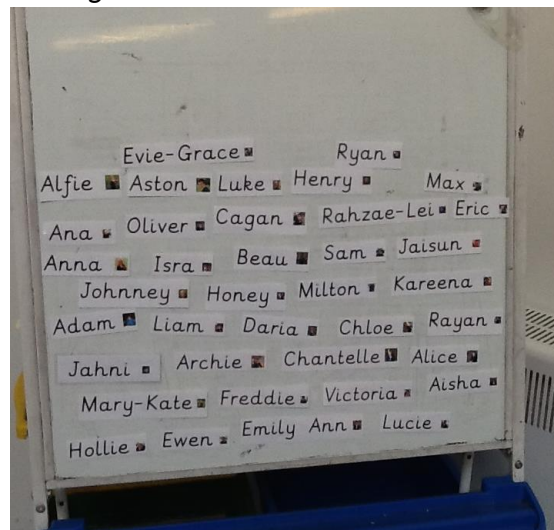 Evie-Grace Ryan
Alfie Aston Luke Henry Max
Ana Oliver Cagan Rahzae-Lei Eric
Anna Isra Beau Sam Jaisun
Johnney Honey Milton Kareena
Adam Liam Daria Chloe Rayan
Jahni Archie Chantelle Alice
Mary-Kate Freddie Victoria Aisha
Hollie Ewen Emily Ann Lucie